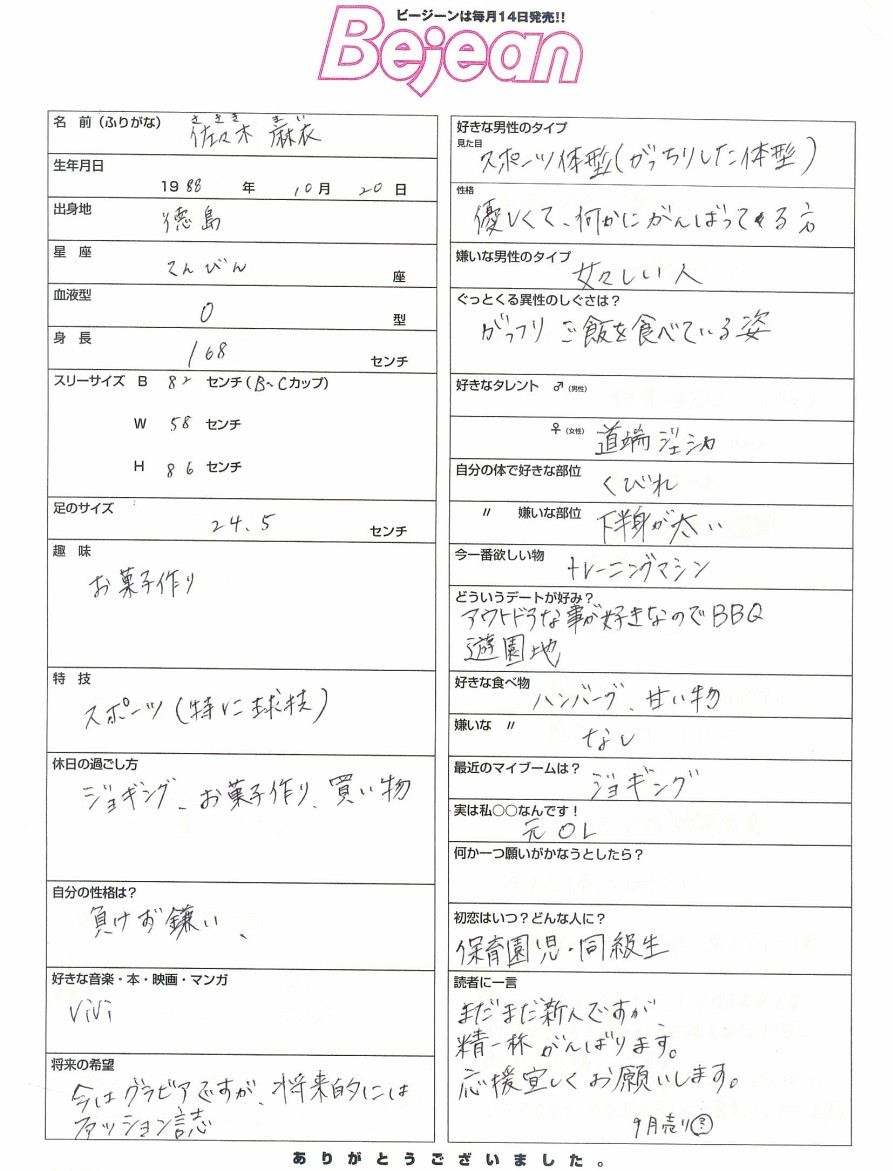 ビージーンは毎月14日発売!!
Bejean
名 前（ふりがな）
ささき まい
佐々木 麻衣
生年月日
1988 年 10月 20日
出身地
徳島
星 座
てんびん 座
血液型
O 型
身 長
168 センチ
スリーサイズ B 82 センチ（B〜Cカップ）
W 58 センチ
H 86 センチ
足のサイズ
24.5 センチ
趣 味
お菓子作り
特 技
スポーツ（特に球技）
休日の過ごし方
ジョギング、お菓子作り、買い物
自分の性格は？
負けず嫌い、
好きな音楽・本・映画・マンガ
ViVi
将来の希望
今はグラビアですが、将来的には
ファッション誌
好きな男性のタイプ
見た目
スポーツ体型（がっちりした体型）
性格
優しくて、何かにがんばってる方
嫌いな男性のタイプ
女々しい人
ぐっとくる異性のしぐさは？
がっつり ご飯を食べている姿
好きなタレント ♂（男性）
♀（女性） 道端ジェシカ
自分の体で好きな部位
くびれ
〃 嫌いな部位
下半身が太い
今一番欲しい物
トレーニングマシン
どういうデートが好み？
アウトドアな事が好きなのでBBQ
遊園地
好きな食べ物
ハンバーグ、甘い物
嫌いな 〃
なし
最近のマイブームは？
ジョギング
実は私○○なんです！
元OL
何か一つ願いがかなうとしたら？
初恋はいつ？どんな人に？
保育園児・同級生
読者に一言
まだまだ新人ですが、
精一杯がんばります。
応援宜しくお願いします。
9月売り
ありがとうございました。